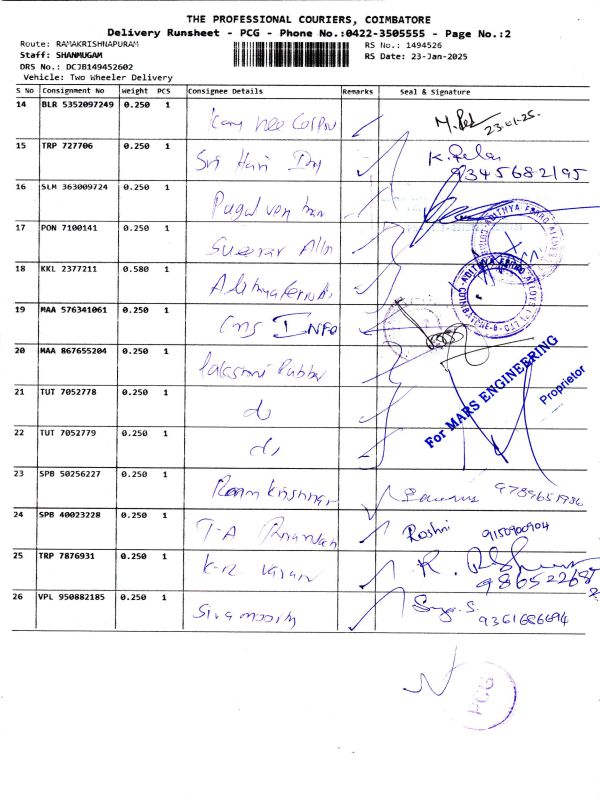 THE PROFESSIONAL COURIERS, COIMBATORE
Delivery Runsheet - PCG - Phone No.:0422-3505555 - Page No.:2
Route: RAMAKRISHNAPURAM
Staff: SHANMUGAM
DRS No.: DCJB149452602
Vehicle: Two Wheeler Delivery
RS No.: 1494526
RS Date: 23-Jan-2025
S No Consignment No Weight PCS Consignee Details Remarks Seal & Signature
14 BLR 5352097249 0.250 1
23-01-25.
15 TRP 727706 0.250 1 Sri Hari
9345682195
16 SLM 363009724 0.250 1
17 PON 7100141 0.250 1
ADITHYA FERRO ALLOYS
18 KKL 2377211 0.580 1
ADITHYA FERRO ALLOYS
19 MAA 576341061 0.250 1 CMS INFO
20 MAA 867655204 0.250 1 Lakshmi Rubber
For MARS ENGINEERING
Proprietor
21 TUT 7052778 0.250 1 do
22 TUT 7052779 0.250 1 do
23 SPB 50256227 0.250 1 Ramkrishnan
24 SPB 40023228 0.250 1 T-A Roshni 9150900904
25 TRP 7876931 0.250 1 K-R
26 VPL 950882185 0.250 1 Sivamoorthy 9361686694
PCG